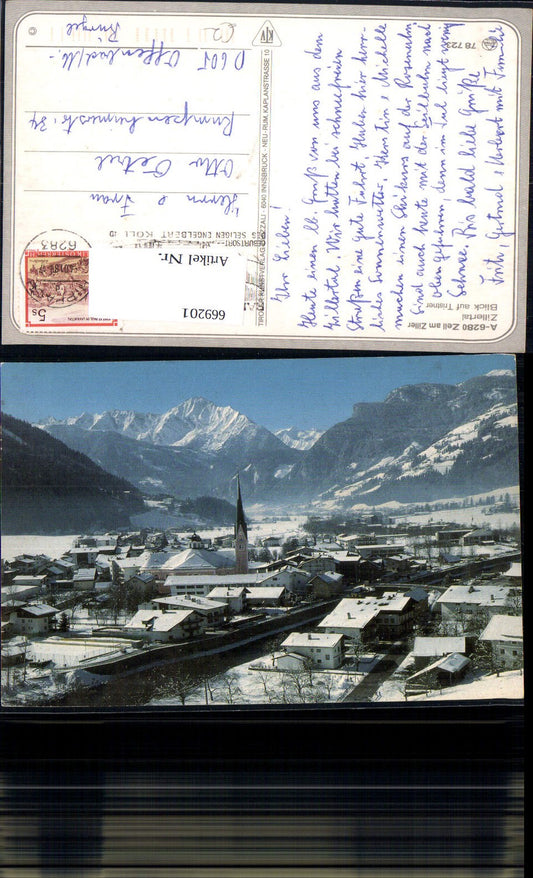 78 723
A-6280 Zell am Ziller
Zillertal
Blick auf Tristner
Ihr Lieben!
Heute einen lb. Gruß von uns aus dem
Zillertal. Wir hatten bei schneefreien
Straßen eine gute Fahrt. Haben hier herr-
liches Sonnenwetter. Kerstin & Michelle
machen einen Skikurs auf der Rosenalm.
Sind auch heute mit der Seilbahn nach
oben gefahren, denn im Tal liegt wenig
Schnee. Bis bald liebe Grüße
Gertrud & Herbert mit Familie
TIROLER KUNSTVERLAG CHIZZALI · 6040 INNSBRUCK - NEU-RUM, KAPLANSTRASSE 10
KIV
6283
GEBURTSORT
DES SELIGEN ENGELBERT KOLLAND
5s
REPUBLIK ÖSTERREICH
Artikel Nr.:
669201
Herrn & Frau
Otto
D 605 Offenbach/M.-